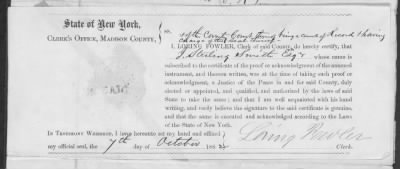 State of New York,
CLERK'S OFFICE, MADISON COUNTY,
SS.
of the County Court being a court of Record & having
I, LORING FOWLER, Clerk of said County, do hereby certify, that
J. Sterling Smith Esqr whose name is
subscribed to the certificate of the proof or acknowledgment of the annexed
instrument, and thereon written, was at the time of taking such proof or
acknowledgment, a Justice of the Peace in and for said County, duly
elected or appointed, and qualified, and authorized by the laws of said
State to take the same; and that I am well acquainted with his hand
writing, and verily believe the signature to the said certificate is genuine,
and that the same is executed and acknowledged according to the Laws
of the State of New York.
IN TESTIMONY WHEREOF, I have hereunto set my hand and affixed
my official seal, the 7th day of October 185
Loring Fowler
Clerk.